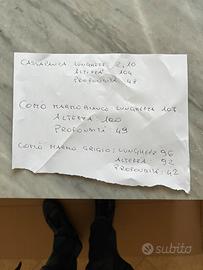 CASSAPANCA LUNGHEZZ 2,10
ALTEZZA 104
PROFONDITÀ 48
COMÒ MARMO BIANCO: LUNGHEZZA 108
ALTEZZA 100
PROFONDITÀ 49
COMÒ MARMO GRIGIO: LUNGHEZZ 96
ALTEZZA 92
PROFONDITÀ: 42
subito